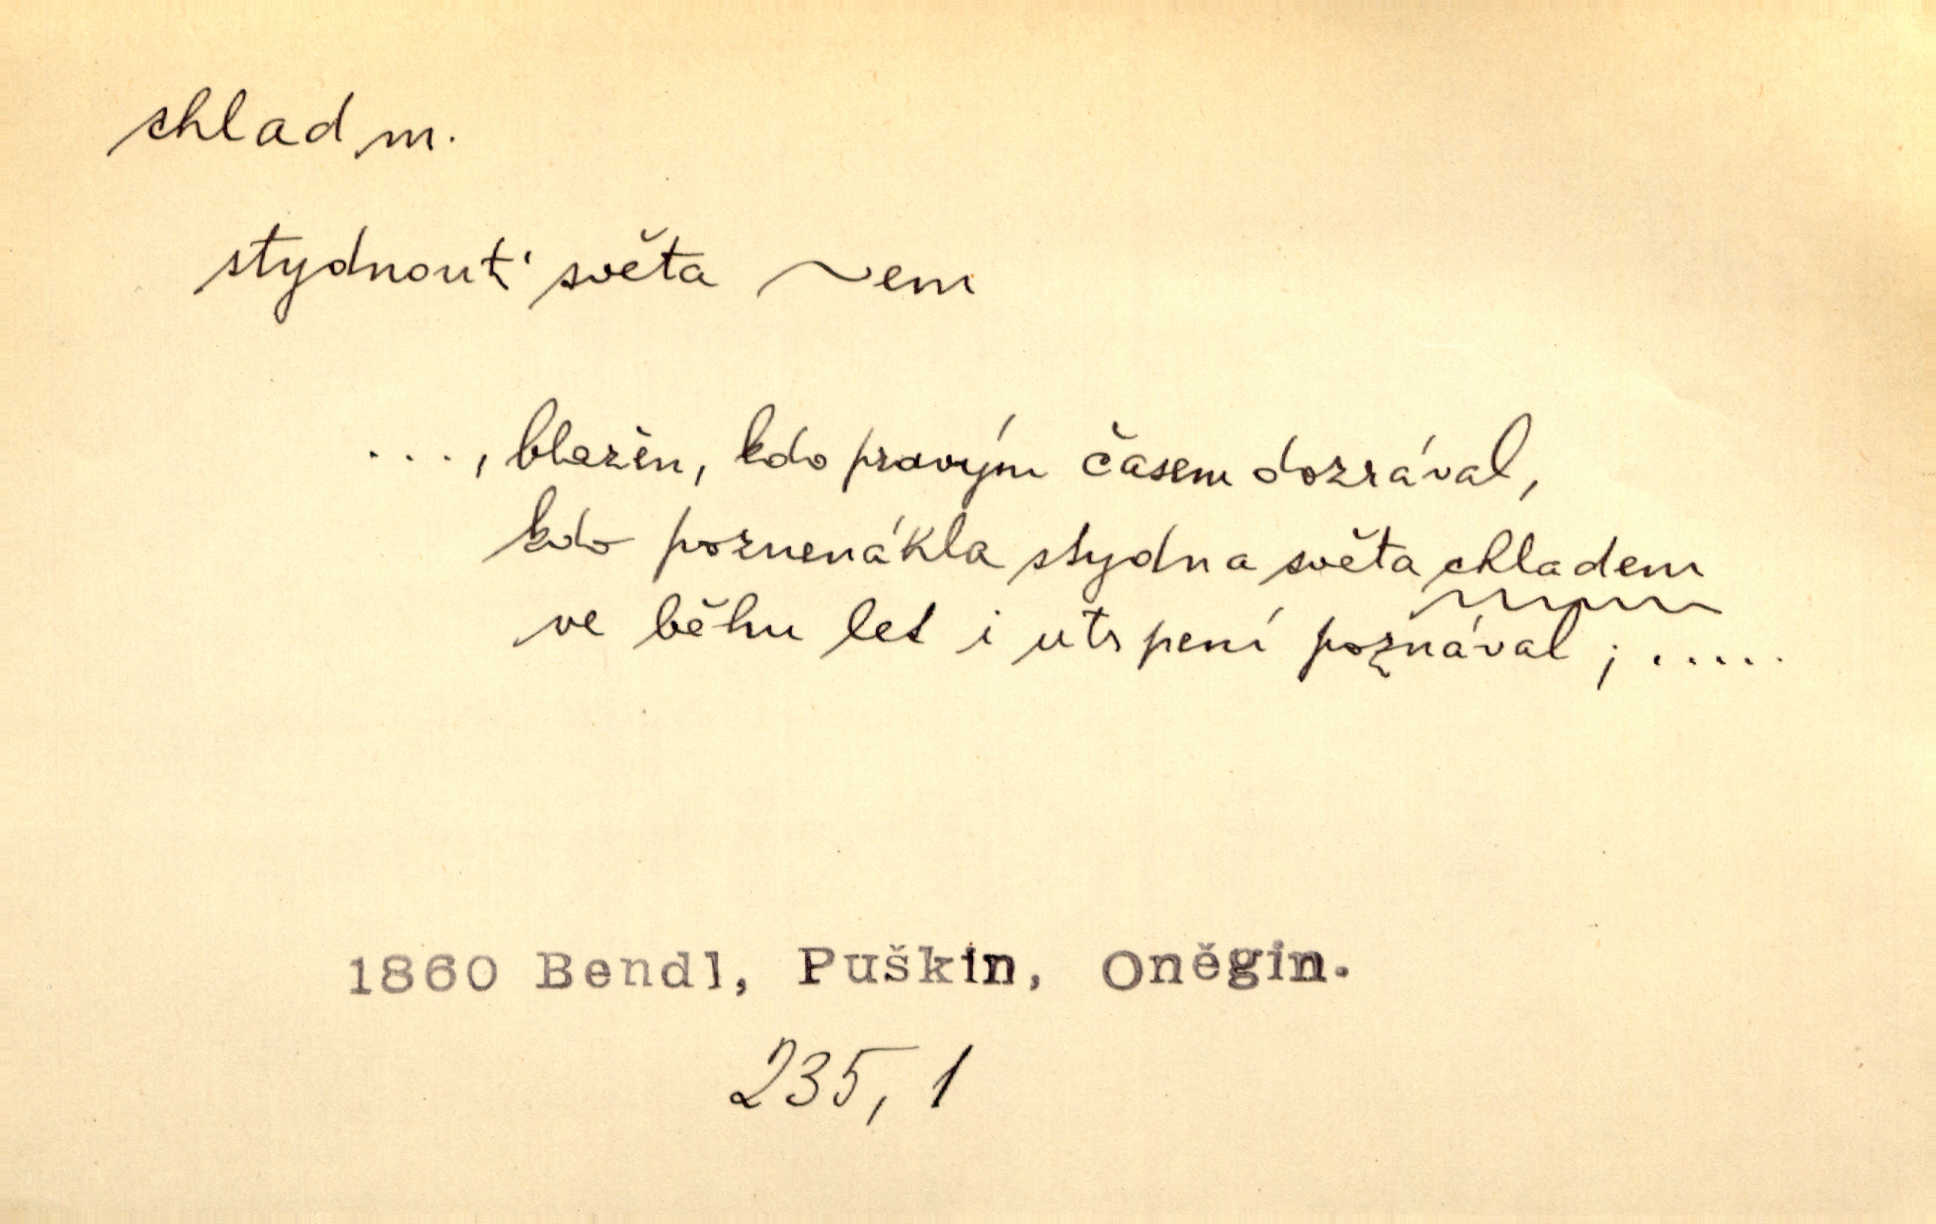 chlad m.
stydnouť světa ~em
..., blažen, kdo pravým časem dozrával,
kdo poznenákla stydna světa chladem
ve běhu let i utrpení poznával; .....
1860 Bendl, Puškin, Oněgin.
235, 1